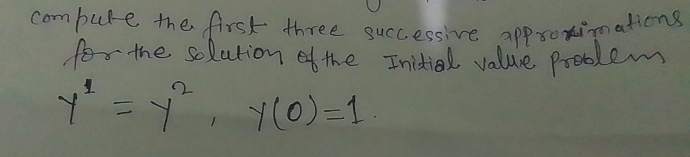 compute the first three successive approximations
for the solution of the Initial value problem
y¹ = y², y(0)=1.